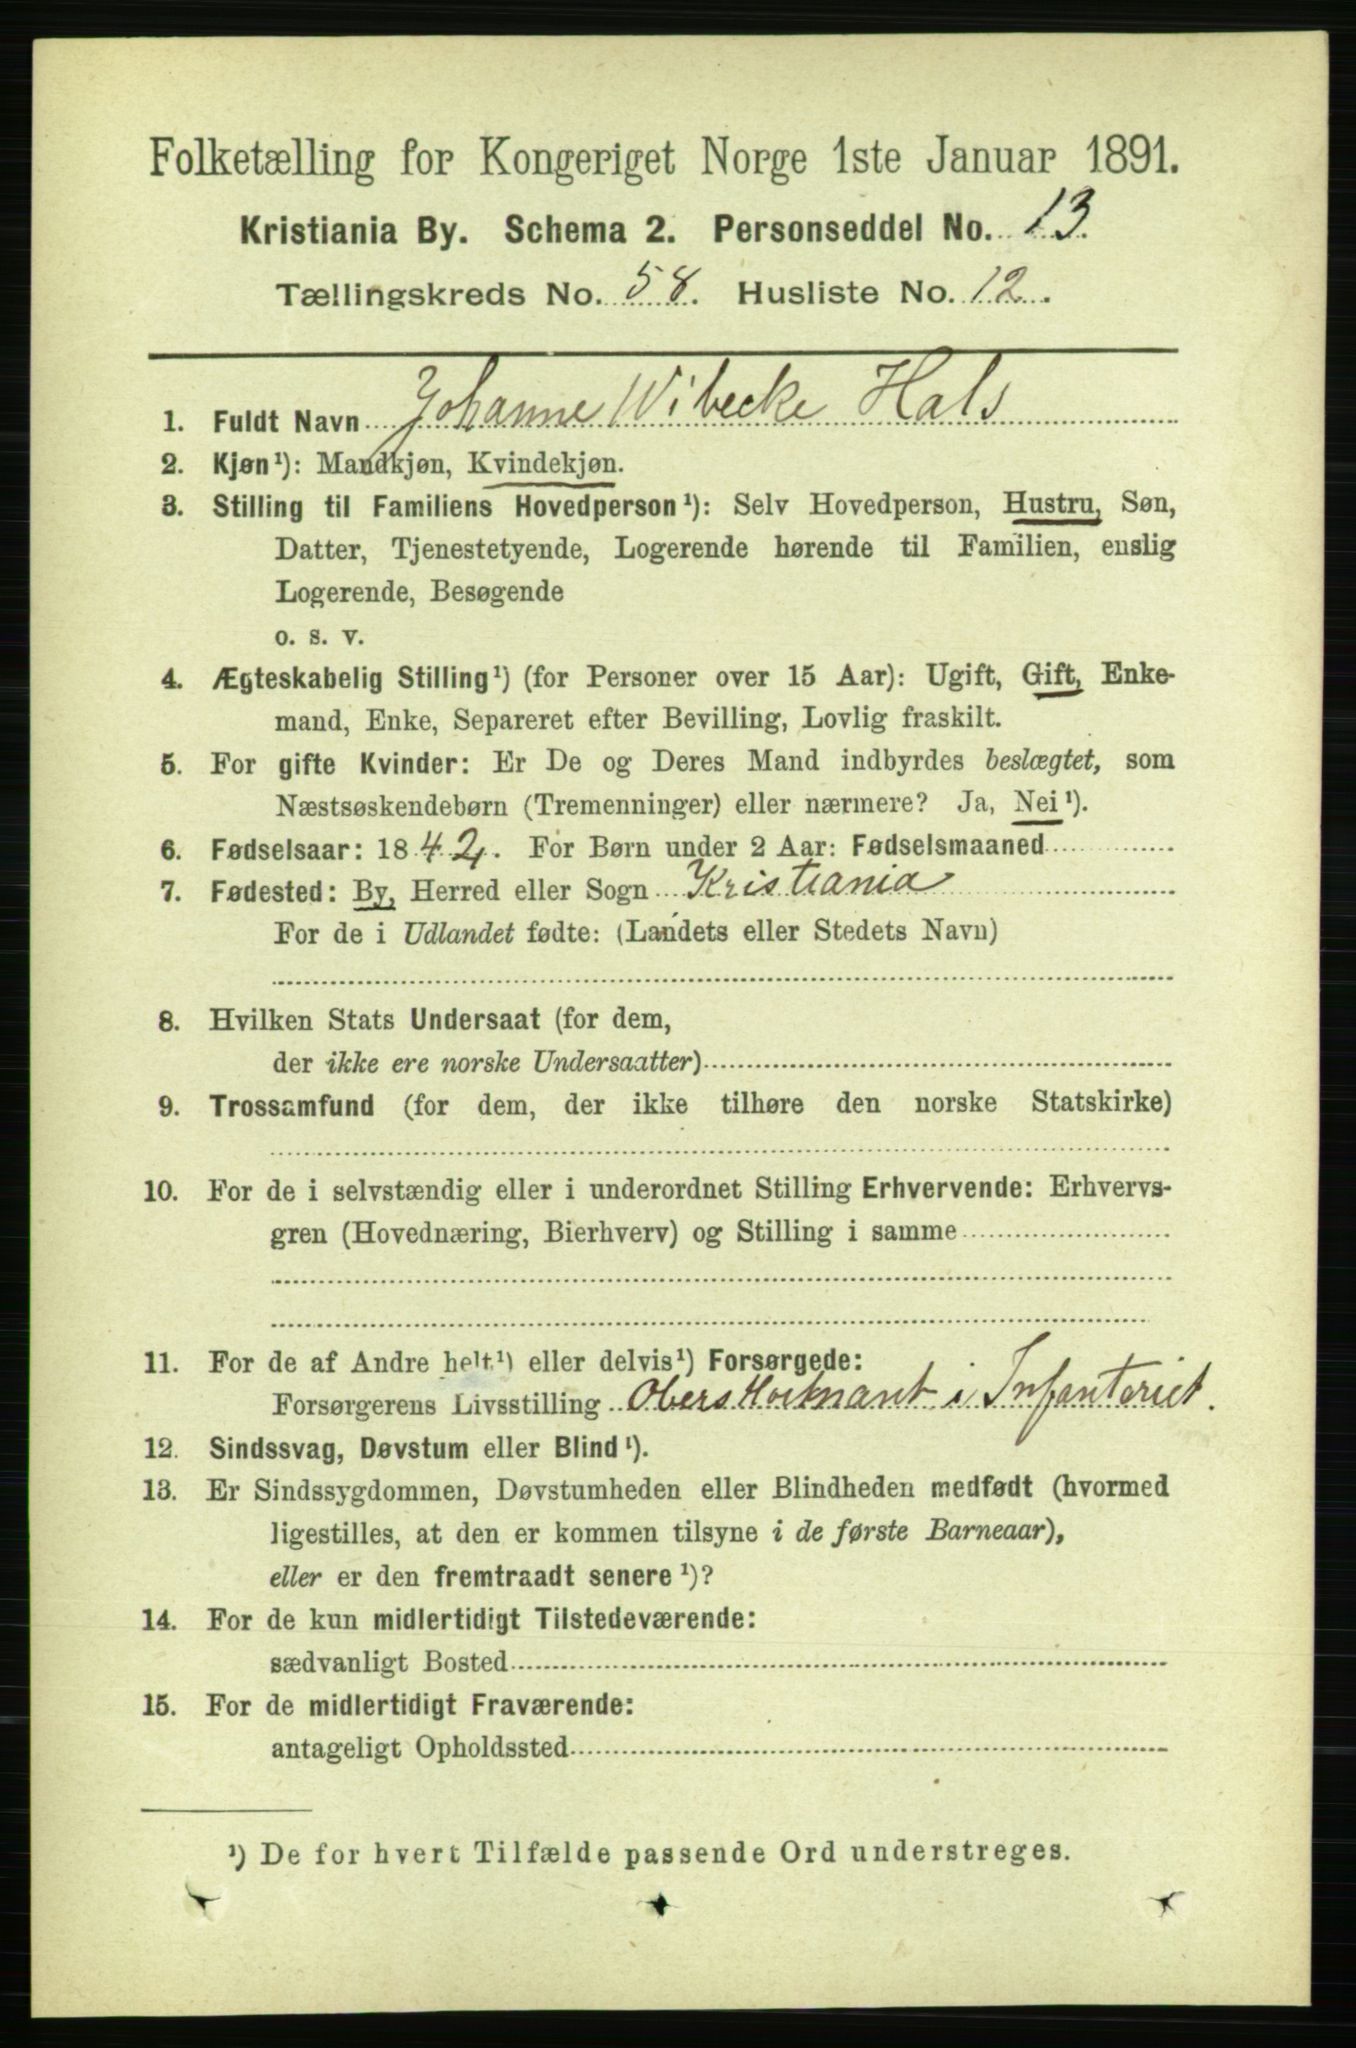 Folketælling for Kongeriget Norge 1ste Januar 1891.
Kristiania By. Schema 2. Personseddel No. 13.
Tællingskreds No. 58. Husliste No. 12.
1. Fuldt Navn Johanne Wibecke Hals
2. Kjøn¹): Mandkjøn, Kvindekjøn.
3. Stilling til Familiens Hovedperson¹): Selv Hovedperson, Hustru, Søn,
Datter, Tjenestetyende, Logerende hørende til Familien, enslig
Logerende, Besøgende
o. s. v.
4. Ægteskabelig Stilling¹) (for Personer over 15 Aar): Ugift, Gift, Enke-
mand, Enke, Separeret efter Bevilling, Lovlig fraskilt.
5. For gifte Kvinder: Er De og Deres Mand indbyrdes beslægtet, som
Næstsøskendebørn (Tremenninger) eller nærmere? Ja, Nei¹).
6. Fødselsaar: 1842. For Børn under 2 Aar: Fødselsmaaned
7. Fødested: By, Herred eller Sogn Kristiania
For de i Udlandet fødte: (Landets eller Stedets Navn)
8. Hvilken Stats Undersaat (for dem,
der ikke ere norske Undersaatter)
9. Trossamfund (for dem, der ikke tilhøre den norske Statskirke)
10. For de i selvstændig eller i underordnet Stilling Erhvervende: Erhvervs-
gren (Hovednæring, Bierhverv) og Stilling i samme
11. For de af Andre helt¹) eller delvis¹) Forsørgede:
Forsørgerens Livsstilling Oberstløitnant i Infanteriet.
12. Sindssvag, Døvstum eller Blind¹).
13. Er Sindssygdommen, Døvstumheden eller Blindheden medfødt (hvormed
ligestilles, at den er kommen tilsyne i de første Barneaar),
eller er den fremtraadt senere¹)?
14. For de kun midlertidigt Tilstedeværende:
sædvanligt Bosted
15. For de midlertidigt Fraværende:
antageligt Opholdssted
¹) De for hvert Tilfælde passende Ord understreges.